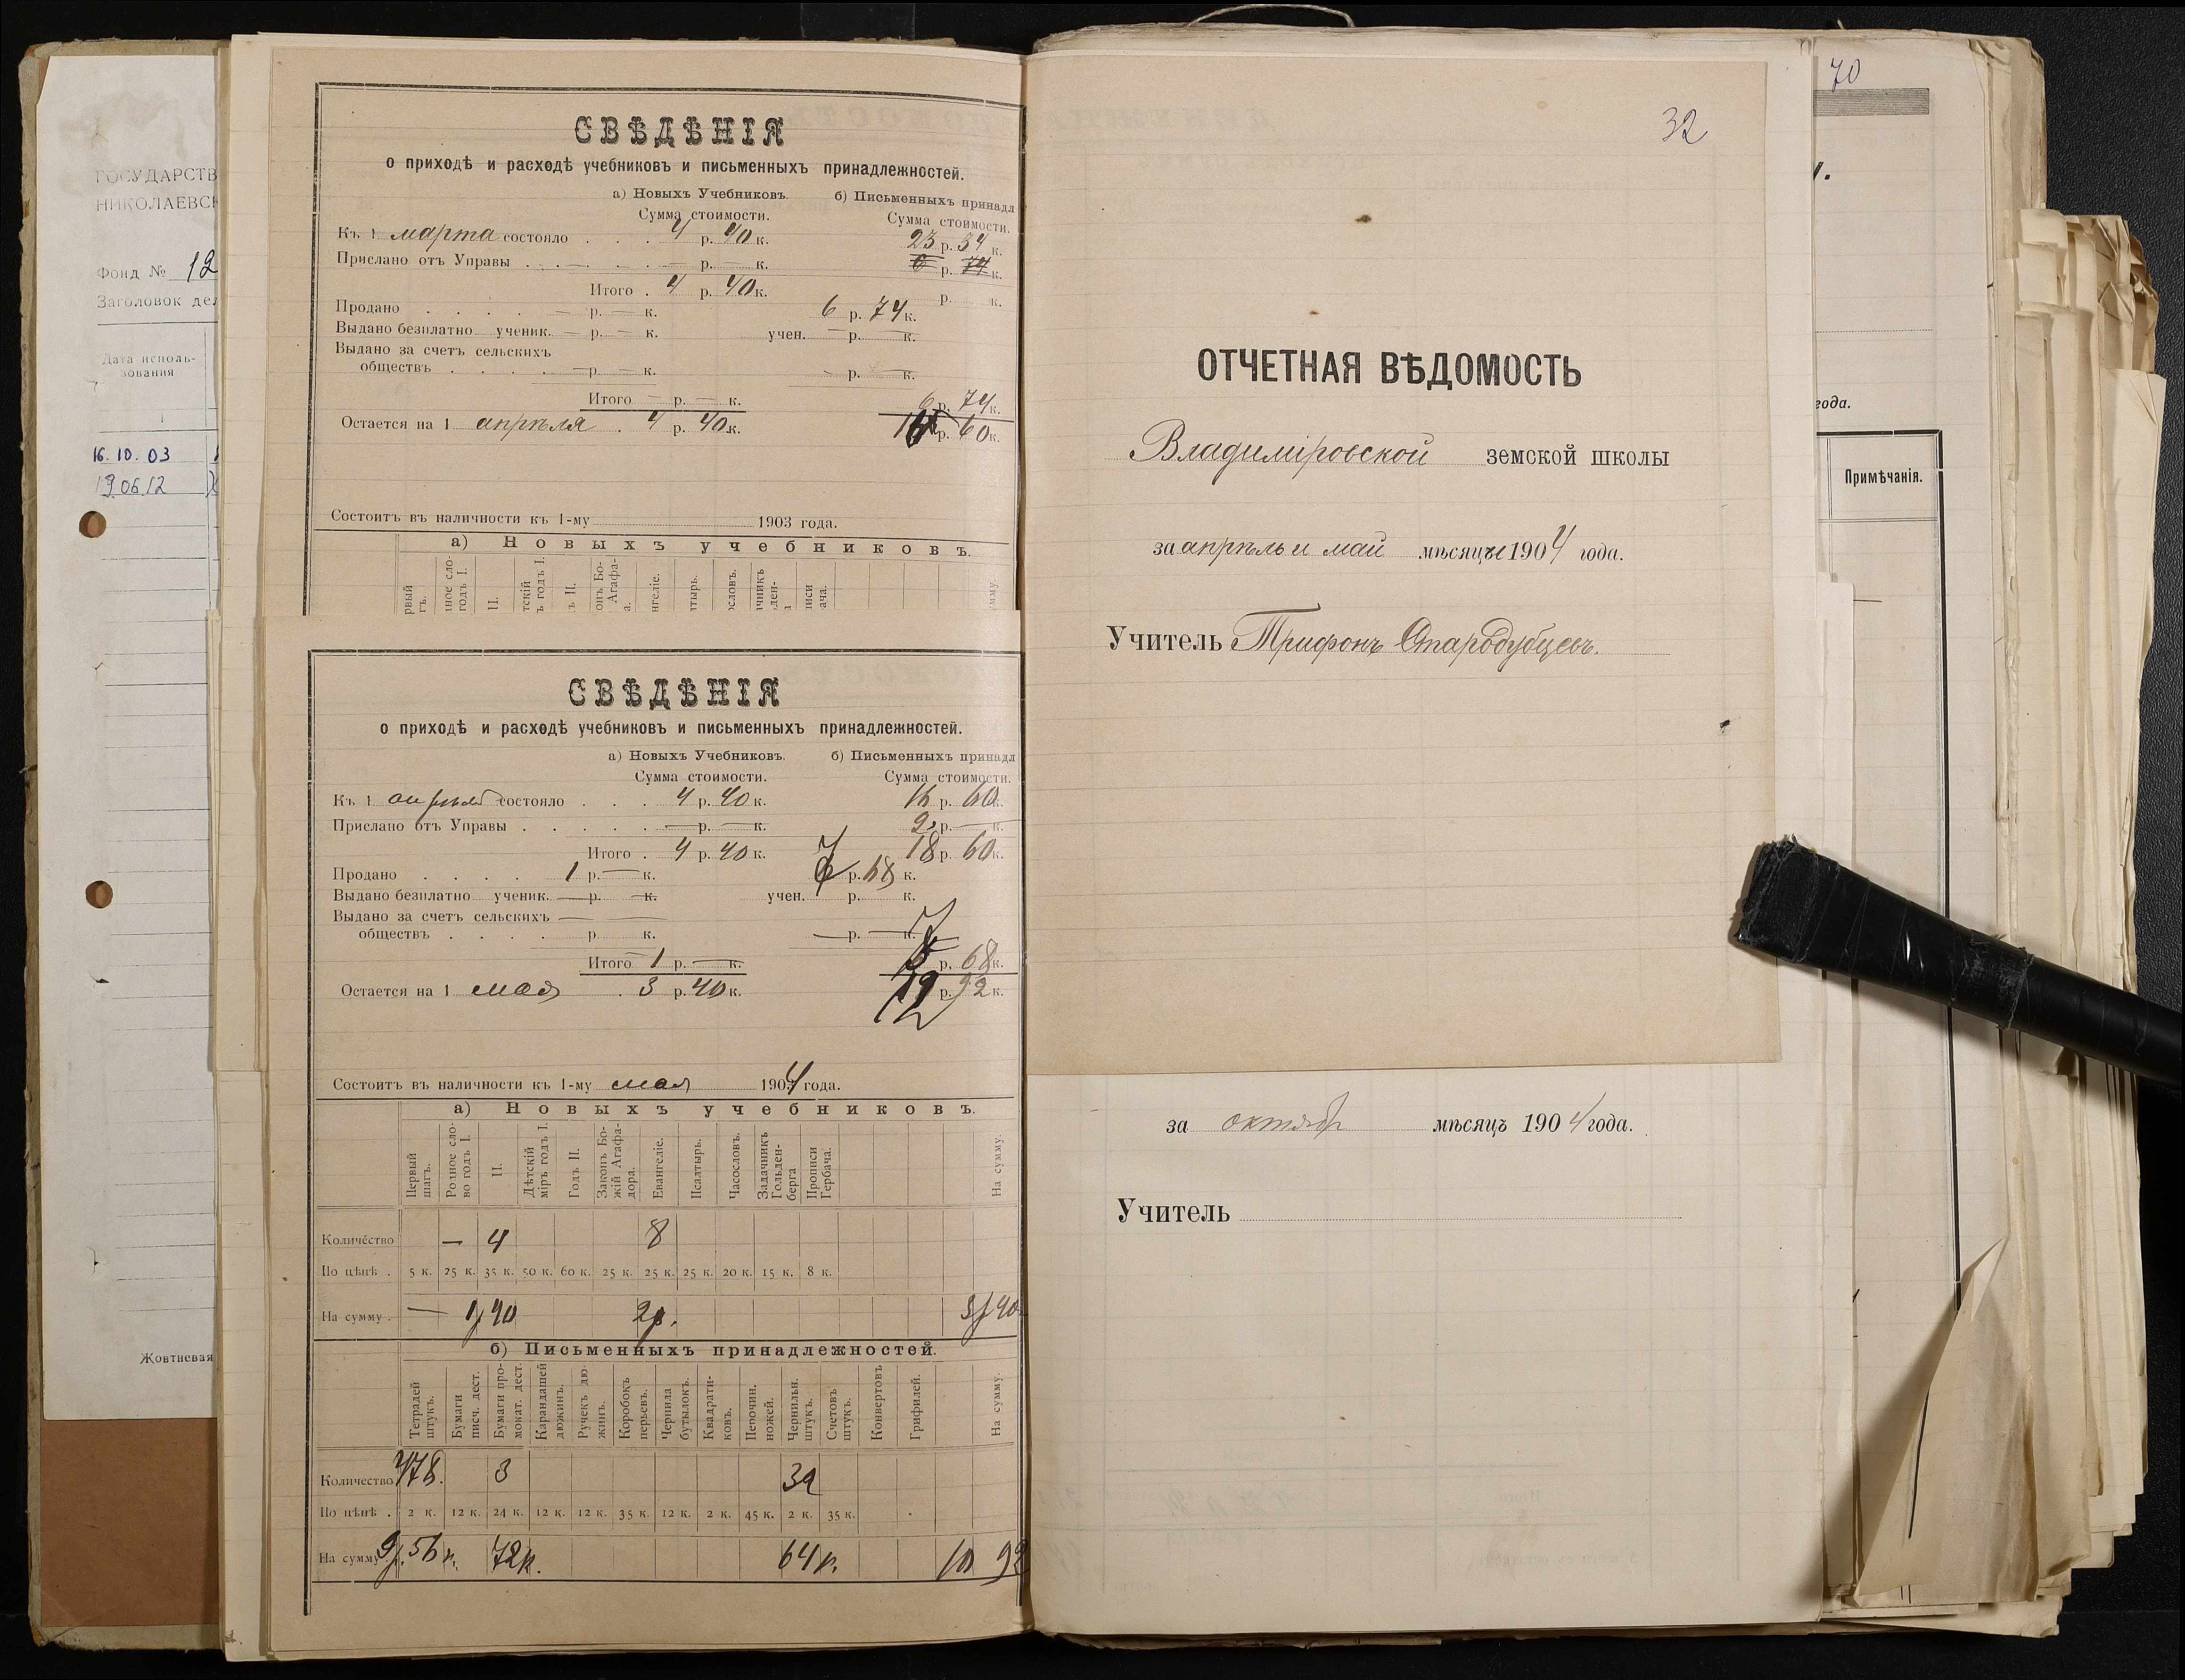 ГОСУДАРСТВ
НИКОЛАЕВСК
Фонд № 12
Заголовок дел
Дата исполь-
зования
1
16.10.03
19.06.12
Жовтневая
СВѢДѢНІЯ
о приходѣ и расходѣ учебниковъ и письменныхъ принадлежностей.
а) Новыхъ Учебниковъ. б) Письменныхъ принадл
Сумма стоимости. Сумма стоимости.
Къ 1 марта состояло . . . 4 р. 40 к. 23 р. 34 к.
Прислано отъ Управы . — . . . — р. — к. р. к.
Итого . 4 р. 40 к. р. к.
Продано . . . . — р. — к. 6 р. 74 к.
Выдано безплатно ученик. — р. — к. учен. — р. — к.
Выдано за счетъ сельскихъ
обществъ . . . . — р. — к. р. — к.
Итого — р. — к. 6 р. 74 к.
Остается на 1 апрѣля . 4 р. 40 к. р. 60 к.
Состоитъ въ наличности къ 1-му 1903 года.
а) Новыхъ учебниковъ.
СВѢДѢНІЯ
о приходѣ и расходѣ учебниковъ и письменныхъ принадлежностей.
а) Новыхъ Учебниковъ. б) Письменныхъ принадл
Сумма стоимости. Сумма стоимости.
Къ 1 апрѣля состояло . . . 4 р. 40 к. 16 р. 60 к.
Прислано отъ Управы . . . . . — р. — к. 2 р. — к.
Итого . 4 р. 40 к. 18 р. 60 к.
Продано . . . . 1 р. — к. 7 р. 68 к.
Выдано безплатно ученик. — р. — к. учен. р. к.
Выдано за счетъ сельскихъ — —
обществъ . . . . р. к. — р. — к.
Итого 1 р. — к. 7 р. 68 к.
Остается на 1 мая . 3 р. 40 к. р. 92 к.
Состоитъ въ наличности къ 1-му мая 1904 года.
а) Новыхъ учебниковъ.
Первый шагъ. Родное сло- во годъ I. II. Дѣтскій міръ годъ I. Годъ II. Законъ Бо- жій Агафа- дора. Евангеліе. Псалтырь. Часословъ. Задачникъ Гольден- берга Прописи Гербача. На сумму.
Количество — 4 8
По цѣнѣ . 5 к. 25 к. 35 к. 50 к. 60 к. 25 к. 25 к. 25 к. 20 к. 15 к. 8 к.
На сумму . — 1р 40 2р. 3р 40
б) Письменныхъ принадлежностей.
Тетрадей штукъ. Бумаги писч. дест. Бумаги про- мокат. дест. Карандашей дюжинъ. Ручекъ дю- жинъ. Коробокъ перьевъ. Чернила бутылокъ. Квадрати- ковъ. Перочин. ножей. Чернильн. штукъ. Счетовъ штукъ. Конвертовъ Грифилей. На сумму.
Количество 478. 3 32
По цѣнѣ . 2 к. 12 к. 24 к. 12 к. 12 к. 35 к. 12 к. 2 к. 45 к. 2 к. 35 к.
На сумму 9р. 56к. 72к. 64к. 10 92
32
ОТЧЕТНАЯ ВѢДОМОСТЬ
Владиміровской земской школы
за апрѣль и май мѣсяцы 1904 года.
Учитель Трифонъ Стародубцевъ.
за октябр мѣсяцъ 1904 года.
Учитель
70
года.
Примѣчанія.